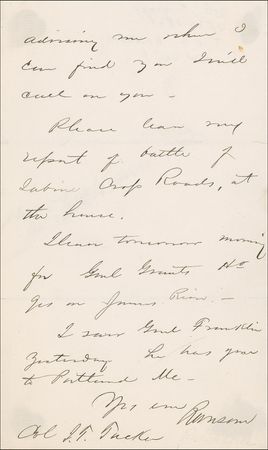 advising me when I
can find you I will
call on you –
Please leave my
report of battle of
Sabine Cross Roads, at
the house.
I leave tomorrow morning
for Genl Grants Hd
Qrs on James River. –
I saw Genl Franklin
Yesterday he has gone
to Portland Me –
Yrs
Ransom
Col J.F. Tucker